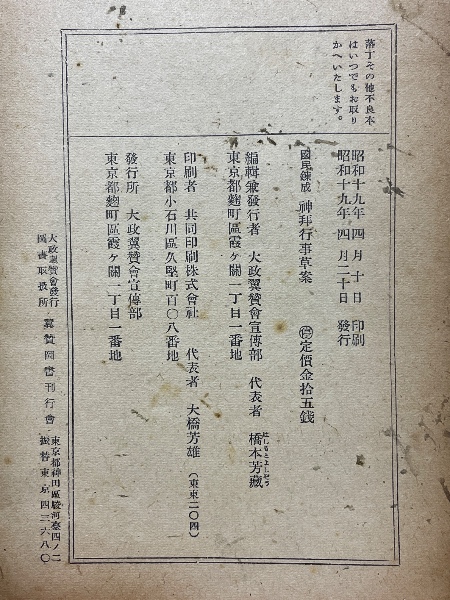 落丁その他不良本
はいつでもお取り
かへいたします。
昭和十九年四月十日 印刷
昭和十九年四月二十日 發行
國民錬成 神拜行事草案 ㊞定價金拾五錢
編輯兼發行者 大政翼贊會宣傳部 代表者 橋本芳藏
東京都麴町區霞ヶ關一丁目一番地
印刷者 共同印刷株式會社 代表者 大橋芳雄(東東二〇四)
東京都小石川區久堅町百〇八番地
發行所 大政翼贊會宣傳部
東京都麴町區霞ヶ關一丁目一番地
大政翼贊會發行
圖書取扱所 翼贊圖書刊行會
東京都神田區駿河臺四ノ二
振替東京四三六八〇